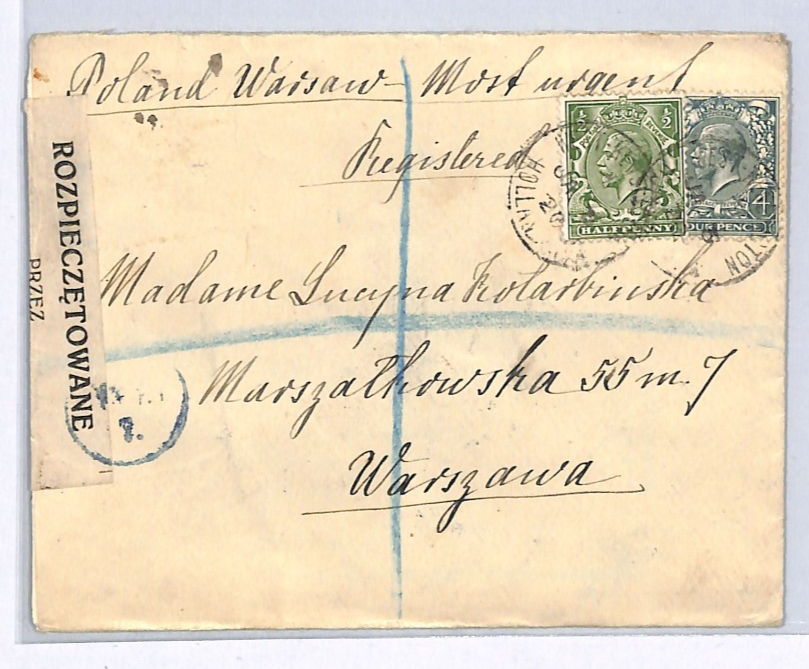 Poland Warsaw - Most urgent
Registered
Madame Lucyna Kotarbinska
Marszałkowska 55 m. 7
Warszawa
ROZPIECZĘTOWANE
PRZEZ
7.
½ ½
HALFPENNY
4
OUR PENCE